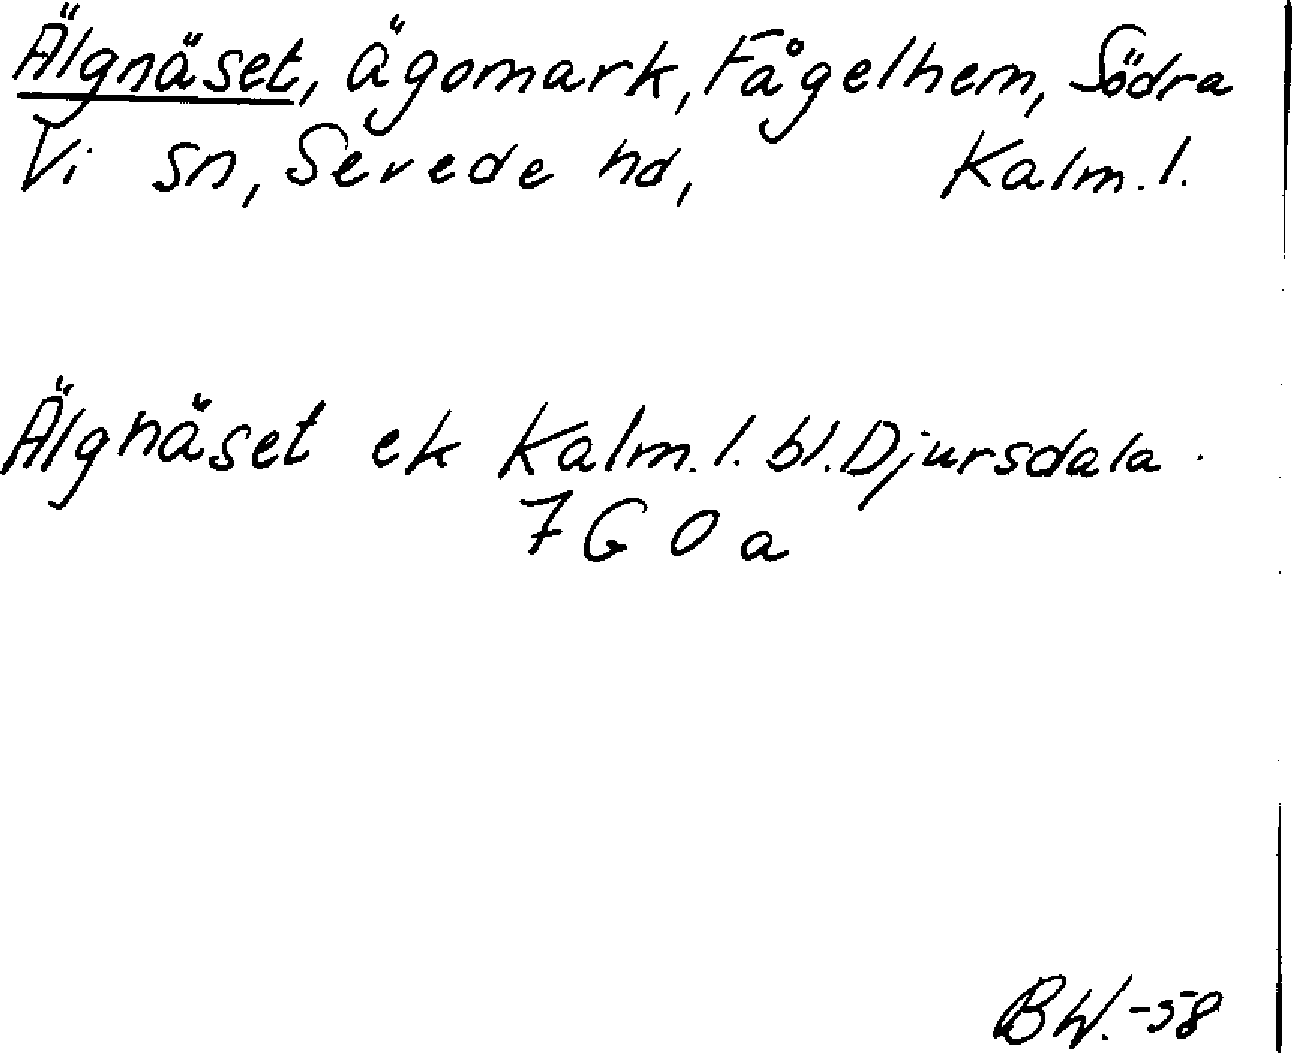 Älgnäset, Ägomark, Fågelhem, Södra
Vi sn, Sevede hd, Kalm. l.
Älgnäset ek Kalm. l. bl. Djursdala.
7 G 0 a
BW. -58